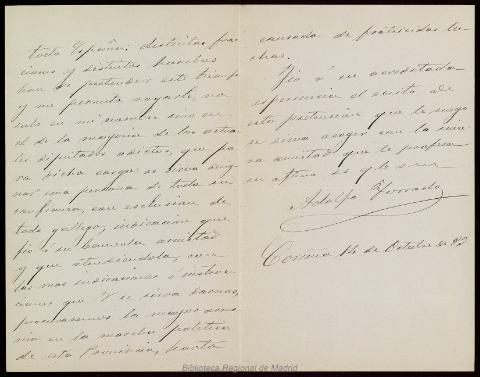 toda España: distritos, frac
ciones y distintos hombres
han de pretender este
y me permito rogarle, no
solo en mi nombre sino en
el de la mayoria de los actua
les diputados adictos, que pa
ra dicho cargo se sirva desig
nar una persona de toda su
confianza, con esclusion de
todo gallego, indicacion que
fio á su
y que atendiendola, con
las mas indicaciones é instruc
ciones que V se sirva darnos,
procuraremos la mayor armo
nia en la marcha politica
de esta Provincia, harto
cansada de fratricidas lu
chas.
Fio á su acreditada
esperiencia el exito de
esta pretension que le ruego
se sirva acoger con la
amistad que le profesa
su afmo. S. S. q. b. s. m.
Adolfo
Coruña 14 de Octubre de
Biblioteca Regional de Madrid